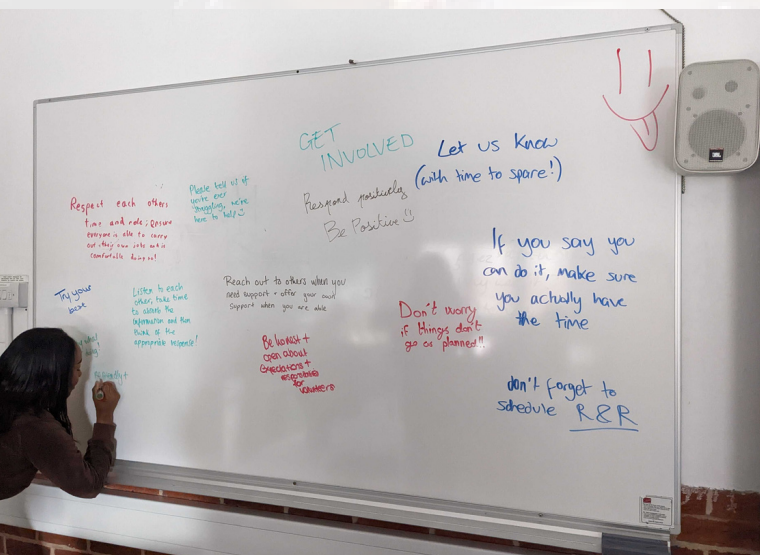 GET
INVOLVED
Let us know
(with time to spare!)
Respect each others
time and role; ensure
everyone is able to carry
out their own jobs and is
comfortable doing so!
Please tell us if
you're ever
struggling, we're
here to help
Respond positively
Be Positive
If you say you
can do it, make sure
you actually have
the time
Try your
best
Listen to each
other, take time
to absorb the
information and then
think of the
appropriate response!
Reach out to others when you
need support + offer your own
support when you are able
Be honest +
open about
expectations +
responsibilities
for
volunteers
Don't worry
if things don't
go as planned!!
don't forget to
schedule R&R
JBL